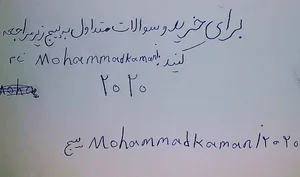 برای خرید و سوالات متداول به پیج زیر مراجعه
کنید Mohammadkaman
۲۰۲۰
Mohammadkaman/۲۰۲۰ پیج